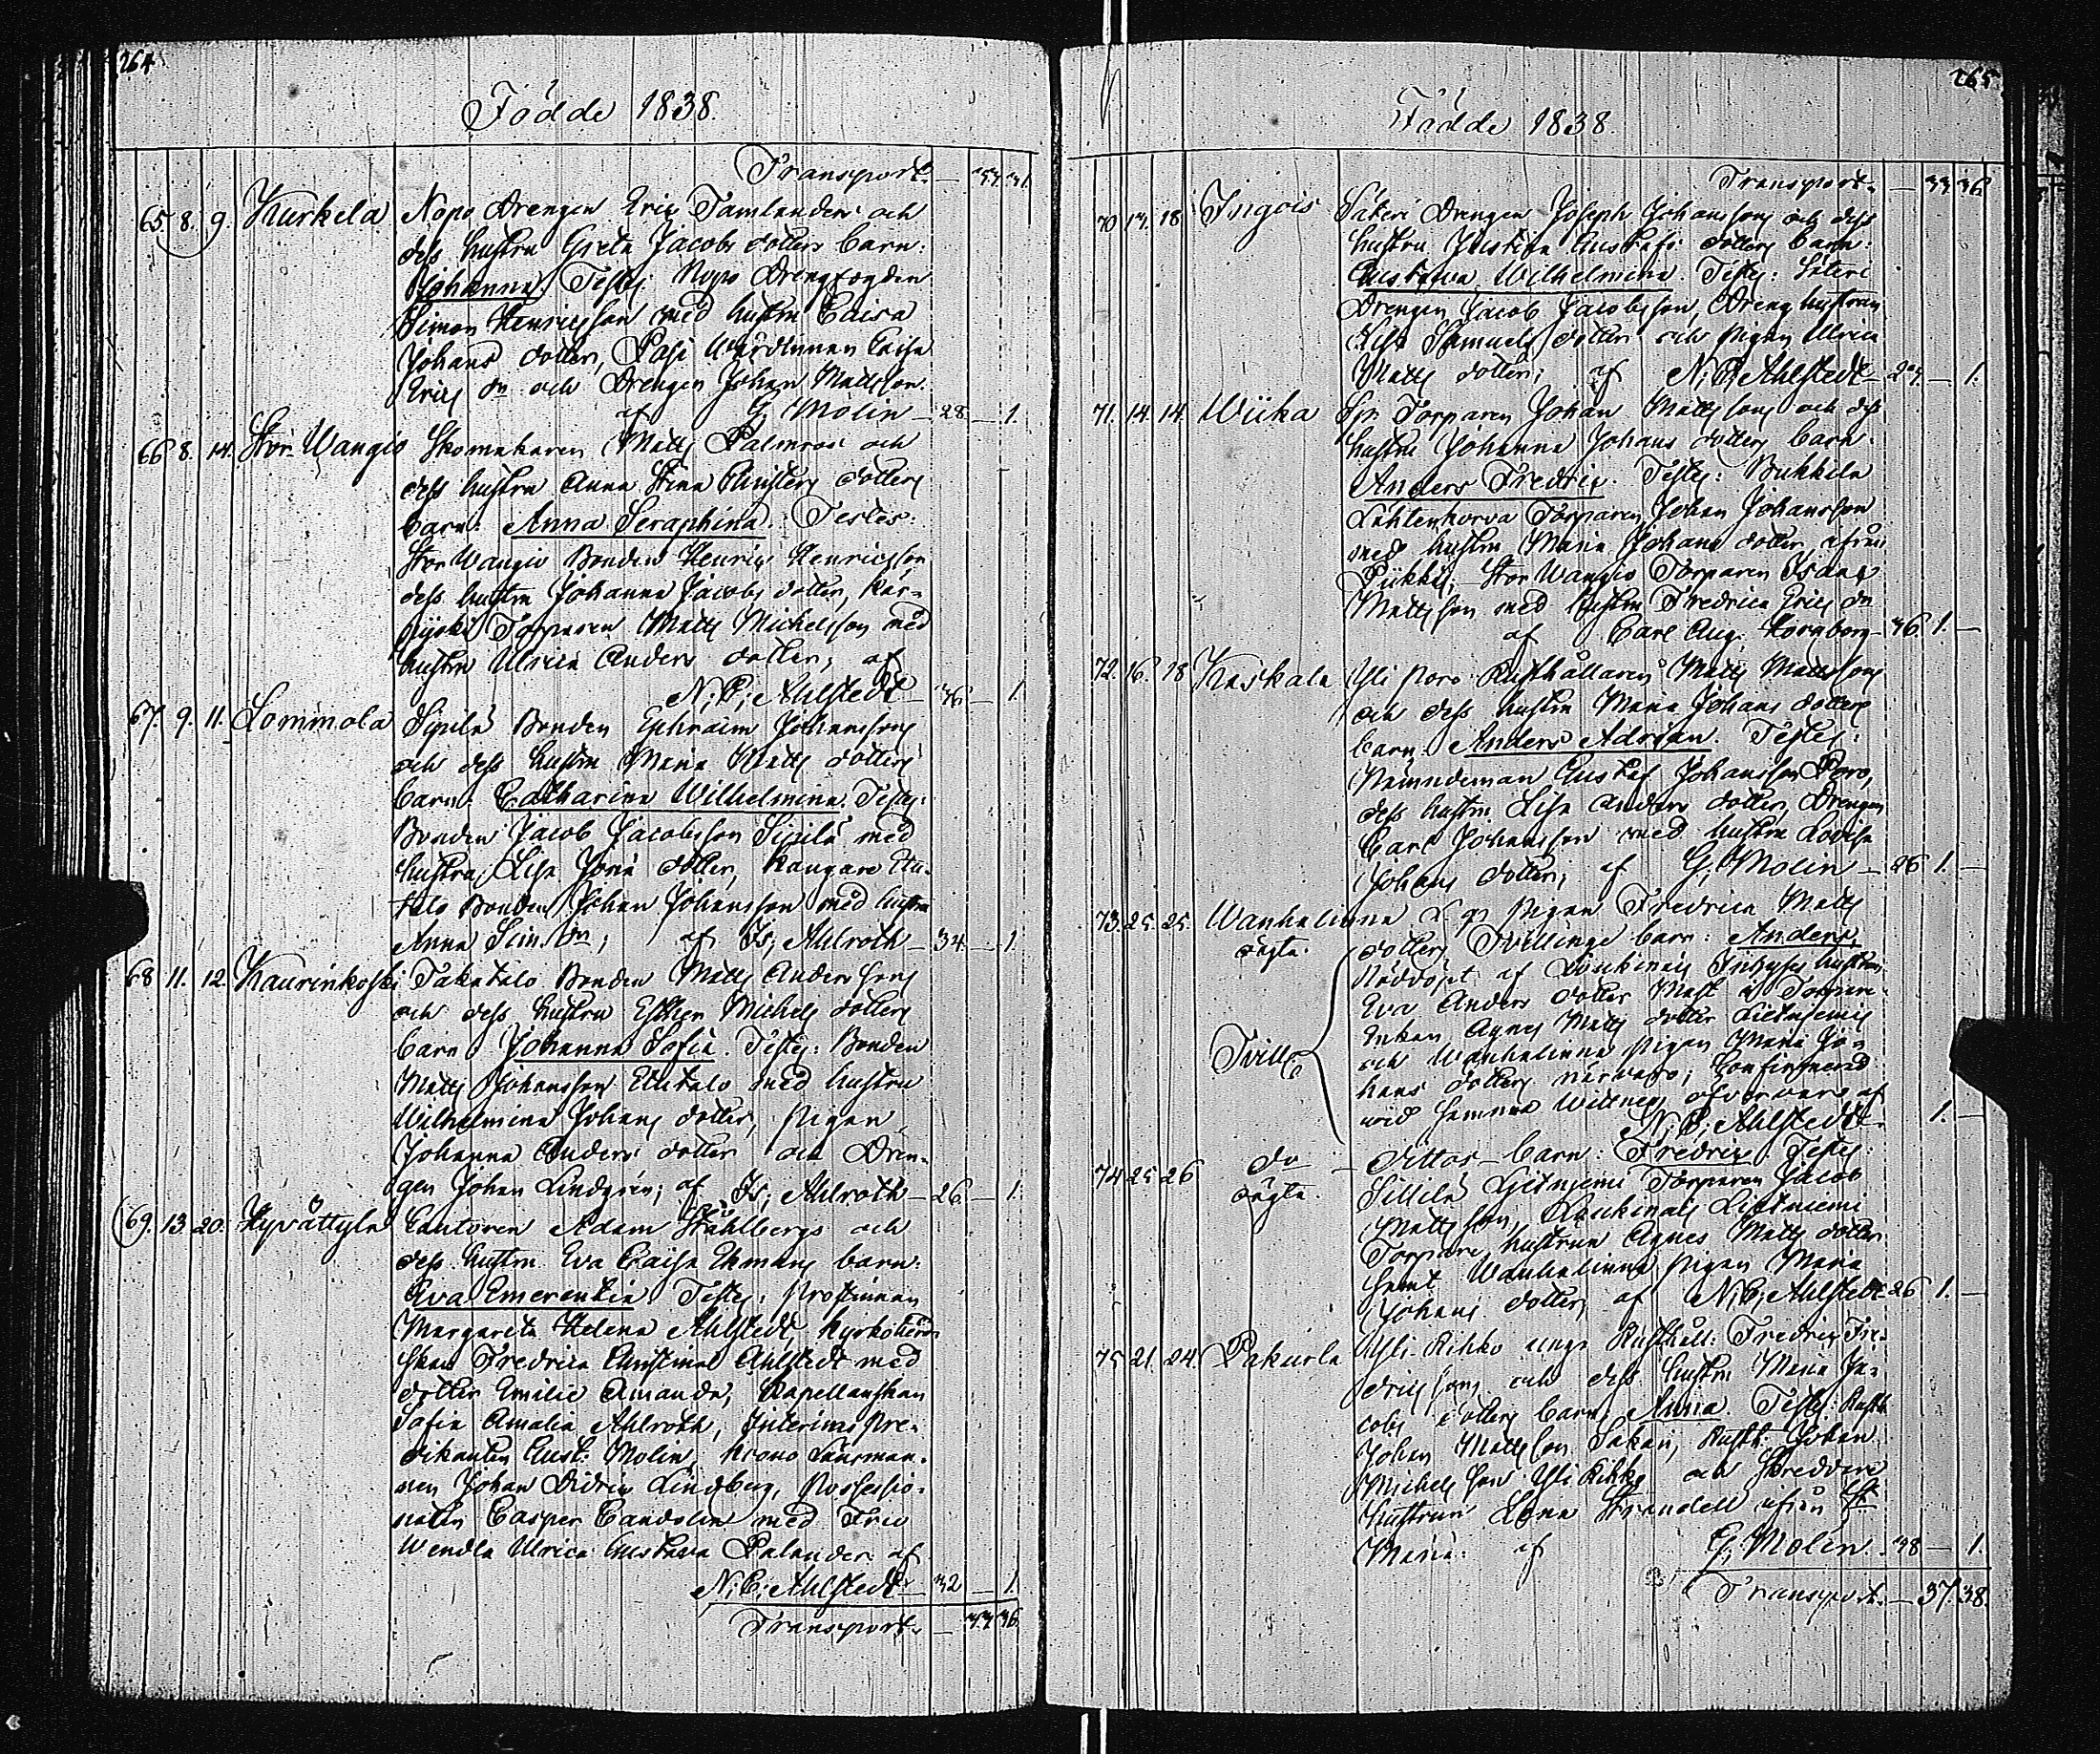 264
Födde 1838.
Transport. — 33. 31.
65. 8. 9. Kurkela Nopo Drengen Eric Tamlanders och
dess hustru Greta Jacobs dotters barn:
Johanna. Testes: Nopo Drengfogden
Simon Henricsson med hustru Caisa
Johans dotter, Pasi Wärdinnan Caisa
Erics dr och Drengen Johan Mattsson.
af G. Molin — 28. — 1.
66. 8. 14. Stor Wangio Skomakaren Matts Palmros och
dess hustru Anna Stina dotters
barn: Anna Seraphina. Testes:
Stor Wangio Bonden Henric Henricsson
dess hustru Johanna Jacobs dotter, Kar-
Torparen Matts Michelsson med
hustru Ulrica Anders dotter, af
N: C: Ahlstedt — 36. — 1.
67. 9. 11. Lommola Sipilä Bonden Ephraim Johanssons
och dess hustru Maria Matts dotters
barn: Catharina Wilhelmina. Testes:
Bonden Jacob Jacobsson Sipilä med
hustru Lisa dotter, Kangare Etu-
talo Bonden Johan Johansson med hustru
Anna Sim. dr; af Is; Ahlroth — 34. — 1.
68. 11. 12. Kaurinkoski Takatalo Bonden Matts Anderssons
och dess hustru Esther Michels dotters
barn: Johanna Sofia. Testes: Bonden
Matts Johansson Etutalo med hustru
Wilhelmina Johans dotter, Pigan
Johanna Anders dotter och Dren-
gen Johan Lindgrén; af Is; Ahlroth — 26. — 1.
69. 13. 20. Hyvättylä Cantoren Adam Ståhlbergs och
dess hustru Eva Caisa Ekmans barn:
Eva Emerentia. Testes: Prostinnan
Margareta Helena Ahlstedt, Kyrkoherd-
skan Fredrica Christina Ahlstedt med
dotter Emilie Amanda, Kapellanskan
Sofia Amalia Ahlroth, Interims Pre-
dikanten Gust. Molin, Krono Länsman-
nen Johan Didric Lindberg, Possessio-
naten Casper Candolin med Fru
Wendla Ulrica Gustava Palander af
N: C: Ahlstedt — 32 — 1.
Transport. — 33. 36.
265
Födde 1838.
Transport. — 33 36
70. 17. 18. Ingois Säteri Drengen Joseph Johanssons och dess
hustru Justina Gustafs dotters barn:
Gustava Wilhelmina. Testes: Säteri
Drengen Jacob Jacobsson, Dreng hustrun
Lisa Samuels dotter och Pigan Ulrica
Matts dotter; af N: C: Ahlstedt — 24. — 1.
71. 14. 14. Wiika Torparen Johan Mattssons och dess
hustru Johanna Johans dotters barn:
Anders Fredric. Testes: Bukkila
Lähtenkorva Torparen Johan Johansson
med hustru Maria Johans dotter ifrån
Piikkis, Stor Wangio Torparen Isaac
Mattsson med hustru Fredrica Erics dr
af Carl Aug. Kornborg — 36. 1. —
72. 16. 18. Kaskala Yli Poro Rusthållaren Matts Mattssons
och dess hustru Maria Johans dotters
barn: Anders Adrian. Testes:
Nämndeman Gustaf Johansson Poro,
dess hustru Lisa Anders dotter, Drengen
Carl Johansson med hustru Lovisa
Johans dotter; af G, Molin — 26 1. —
73. 25. 25. Wanhalinna Pigan Fredrica Matts
oägta. dotters Tvillinge barn: Anders,
Nöddöpt af Inhyses hustrun
Eva Anders dotter
Enkan Agnes Matts dotter
Tvill. och Wanhalinna Pigan Maria Jo-
hans dotters närvaro; Confirmerad
wid samma Wittnes öfvervaro af
N: C: Ahlstedt. 1. —
74 25 26 do — Dittos — barn: Fredric. Testes:
oägta. Torparen Jacob
Mattsson,
Torpare hustrun Agnes Matts dotter
samt Wanhalinna Pigan Maria
Johans dotter; af N: C; Ahlstedt 26 1. —
75 21. 24. Pakurla Yli Kihko unge Rusthåll: Fredric Fre-
dricssons och dess hustru Maria Ja-
cobs dotters barn: Anna. Testes: Rusth.
Johan Mattsson Rusth. Johan
Michelsson Yli Kihko och Skreddare
hustrun Lena Strandell ifrån St
Maria: af G, Molin. 38 — 1.
Transport. — 37. 38.